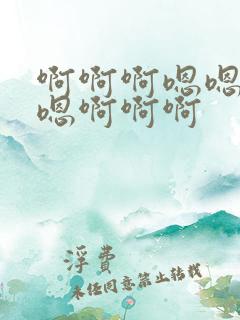 啊啊啊嗯嗯
嗯啊啊啊
浮费
未经同意禁止转载